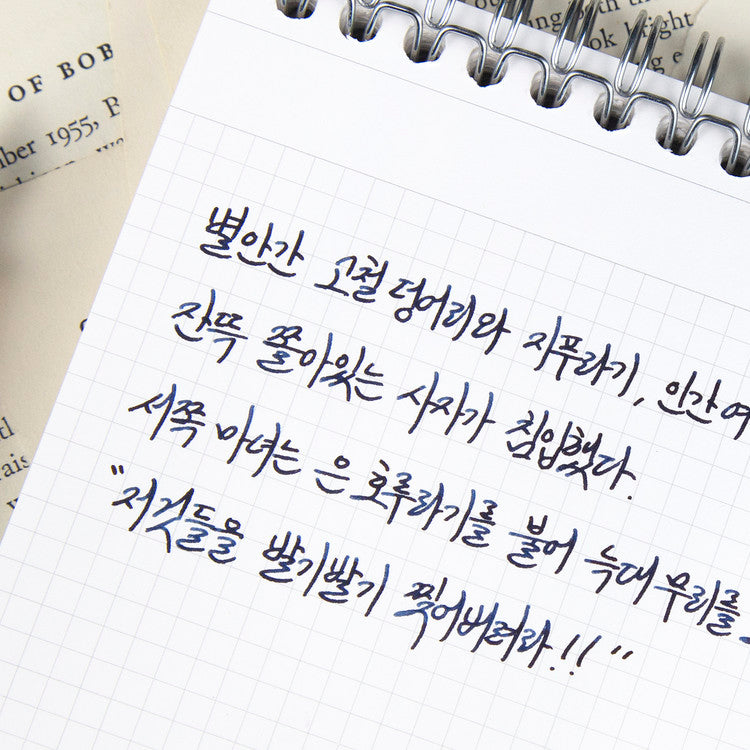 OF BOB
ber 1955,
ung both
ook
별안간 고철 덩어리와 지푸라기, 인간 여
잔뜩 쫄아있는 사자가 침입했다.
서쪽 마녀는 은 호루라기를 불어 늑대 무리를
"저것들을 발기발기 찢어버려라!!"